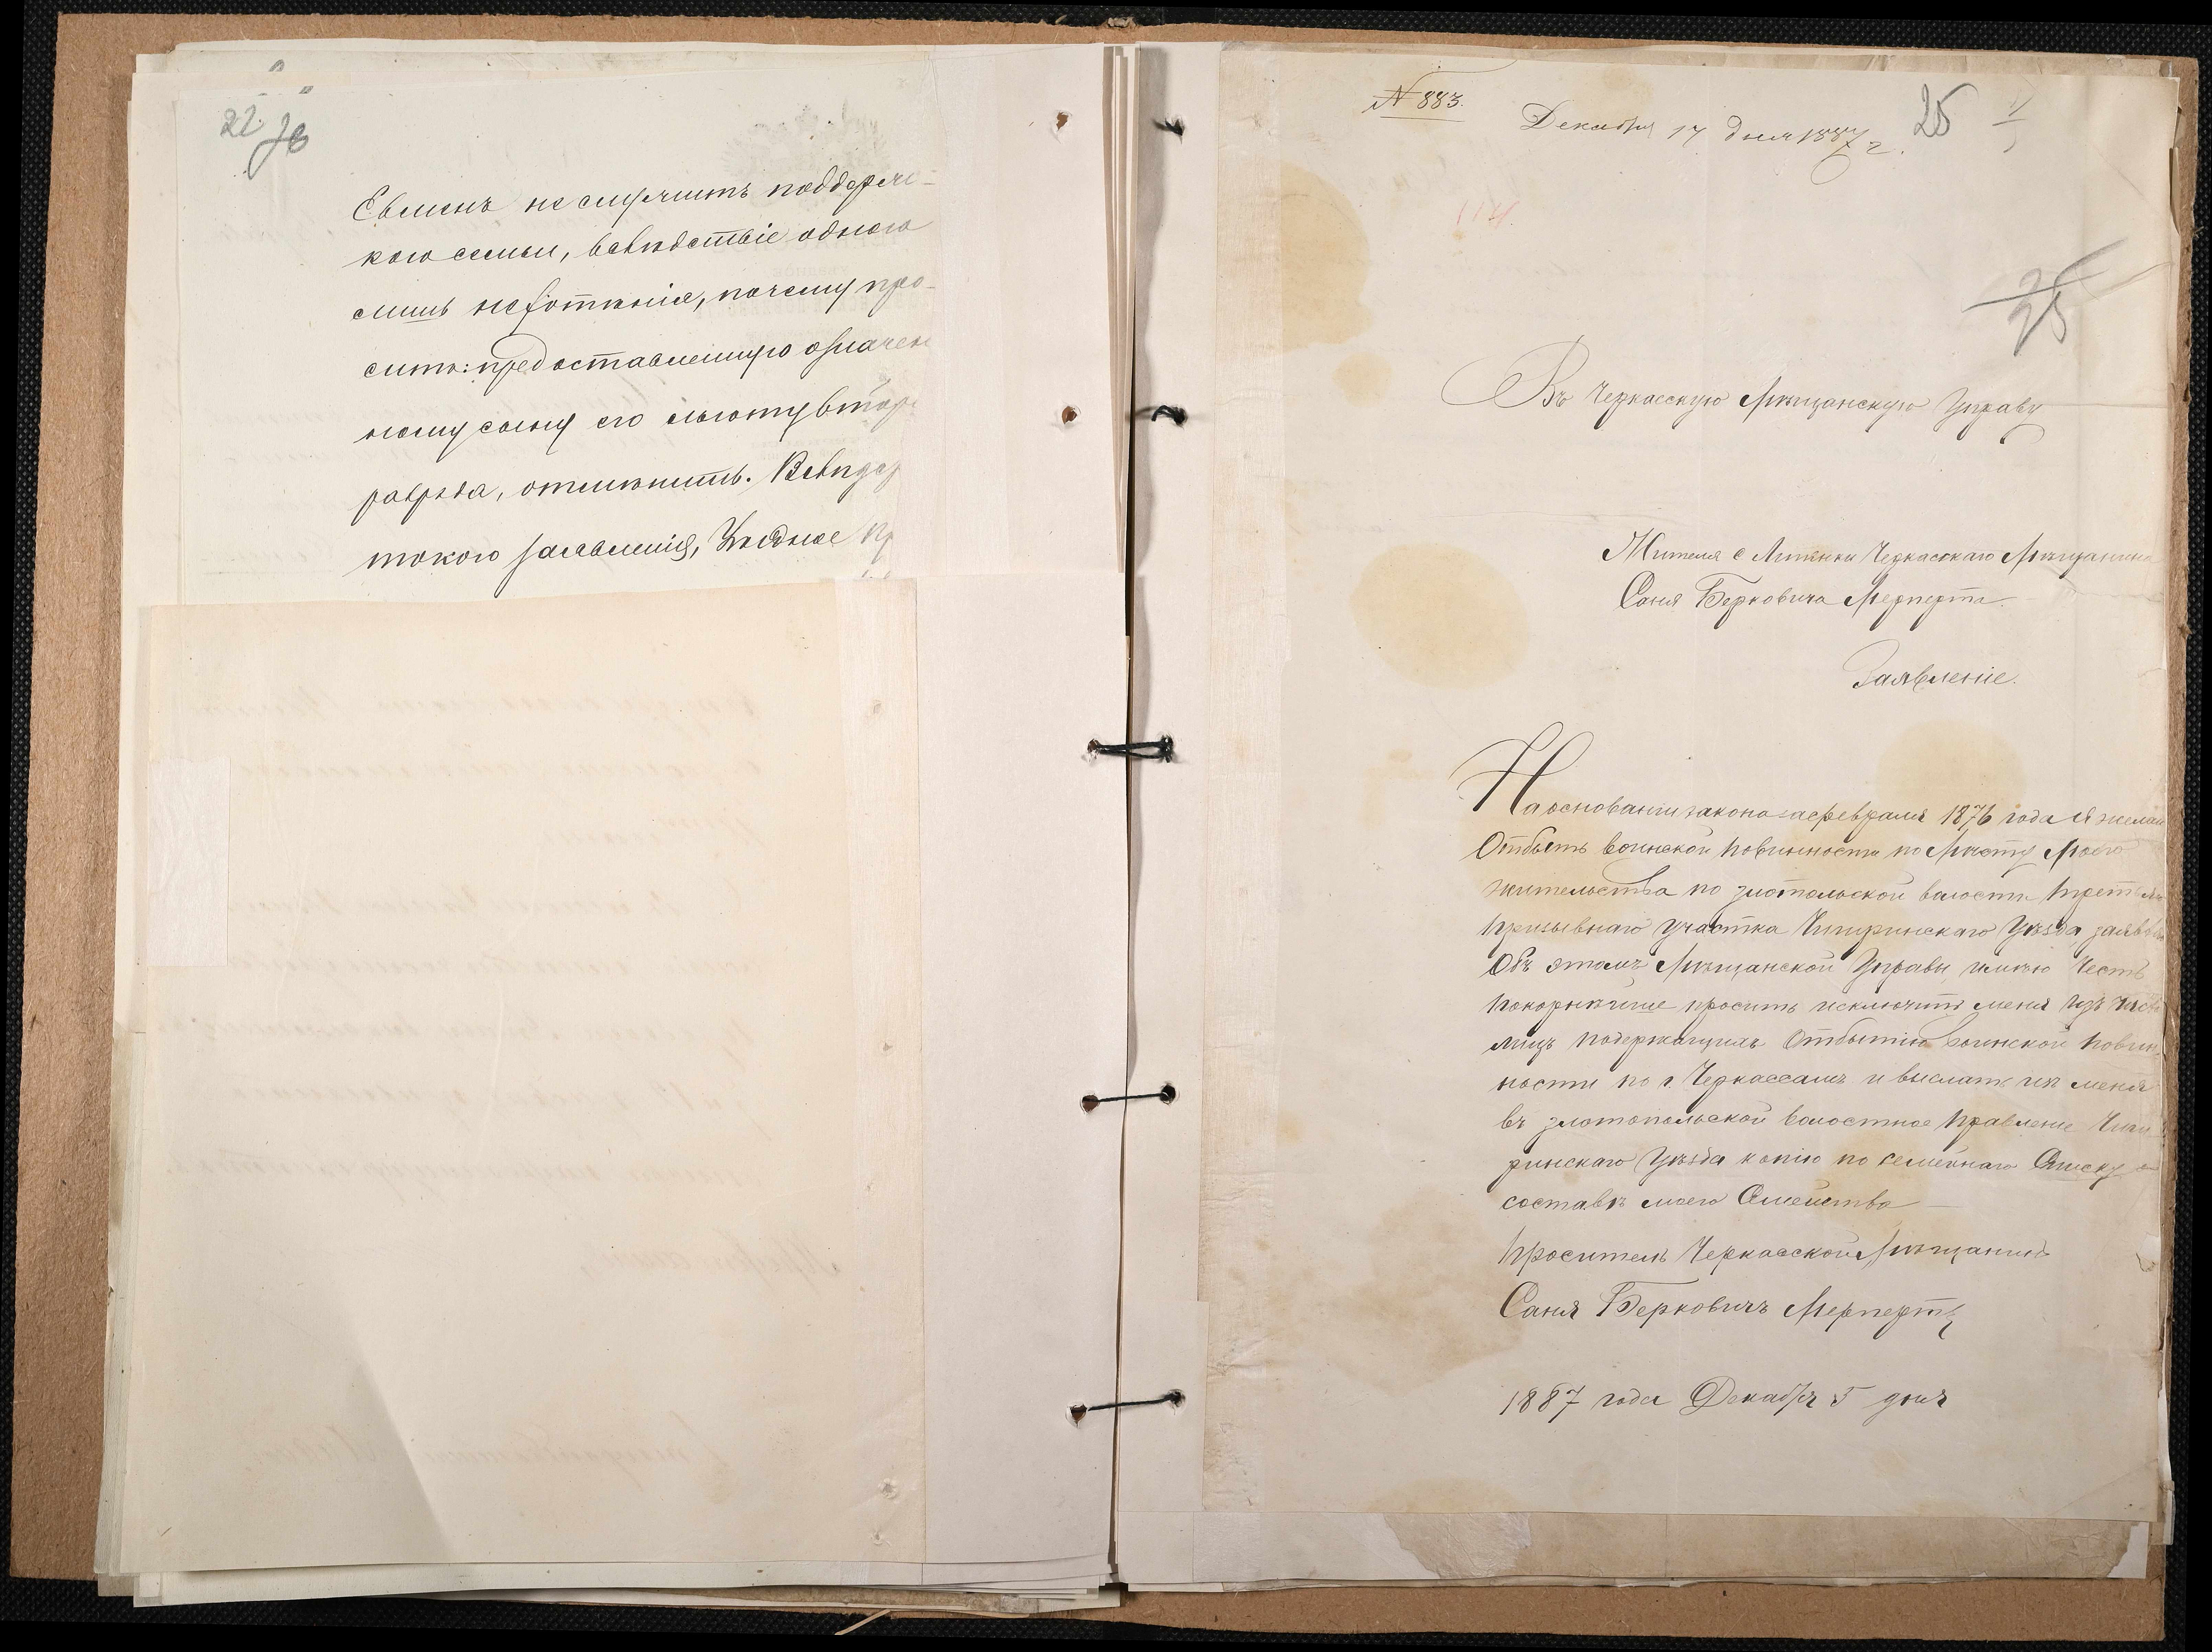 22
Евменъ не служитъ поддерж-
кою семьи, вслѣдствіе одного
лишь нехотѣнія, почему про-
ситъ: предоставленную означен
ному сыну его льготу втор
разряда, отмѣнить. Вслѣд
такого заявленія, Уѣздное Пр
№ 883.
Декабря 17 дня 1887 г.
25
114.
25
Въ Черкасскую Мѣщанскую Управу
Жителя с Липянки Черкасскаго Мѣщанина
Саня Берковича Мерперта.
Заявленіе.
На основаніи закона за февраля 1876 года я желаю
Отбыть воинской повинности по Мѣсту Моего
жительства по злотопольской волости третьяго
призывнаго участка Чигиринскаго Уѣзда заявляя
Объ этомъ Мѣщанской Управы имѣю честь
покорнѣйше просить исключить меня изъ числа
лицъ подержащихъ Отбытію воинской повин-
ности по г. Черкассамъ и выслать на меня
въ злотопольской волостное правленіе Чиги-
ринскаго Уѣзда копію по семейнаго Списку о
составѣ моего Семейства
проситель Черкасской Мѣщанинъ
Саня Берковичъ Мерпертъ
1887 года Декабря 5 дня